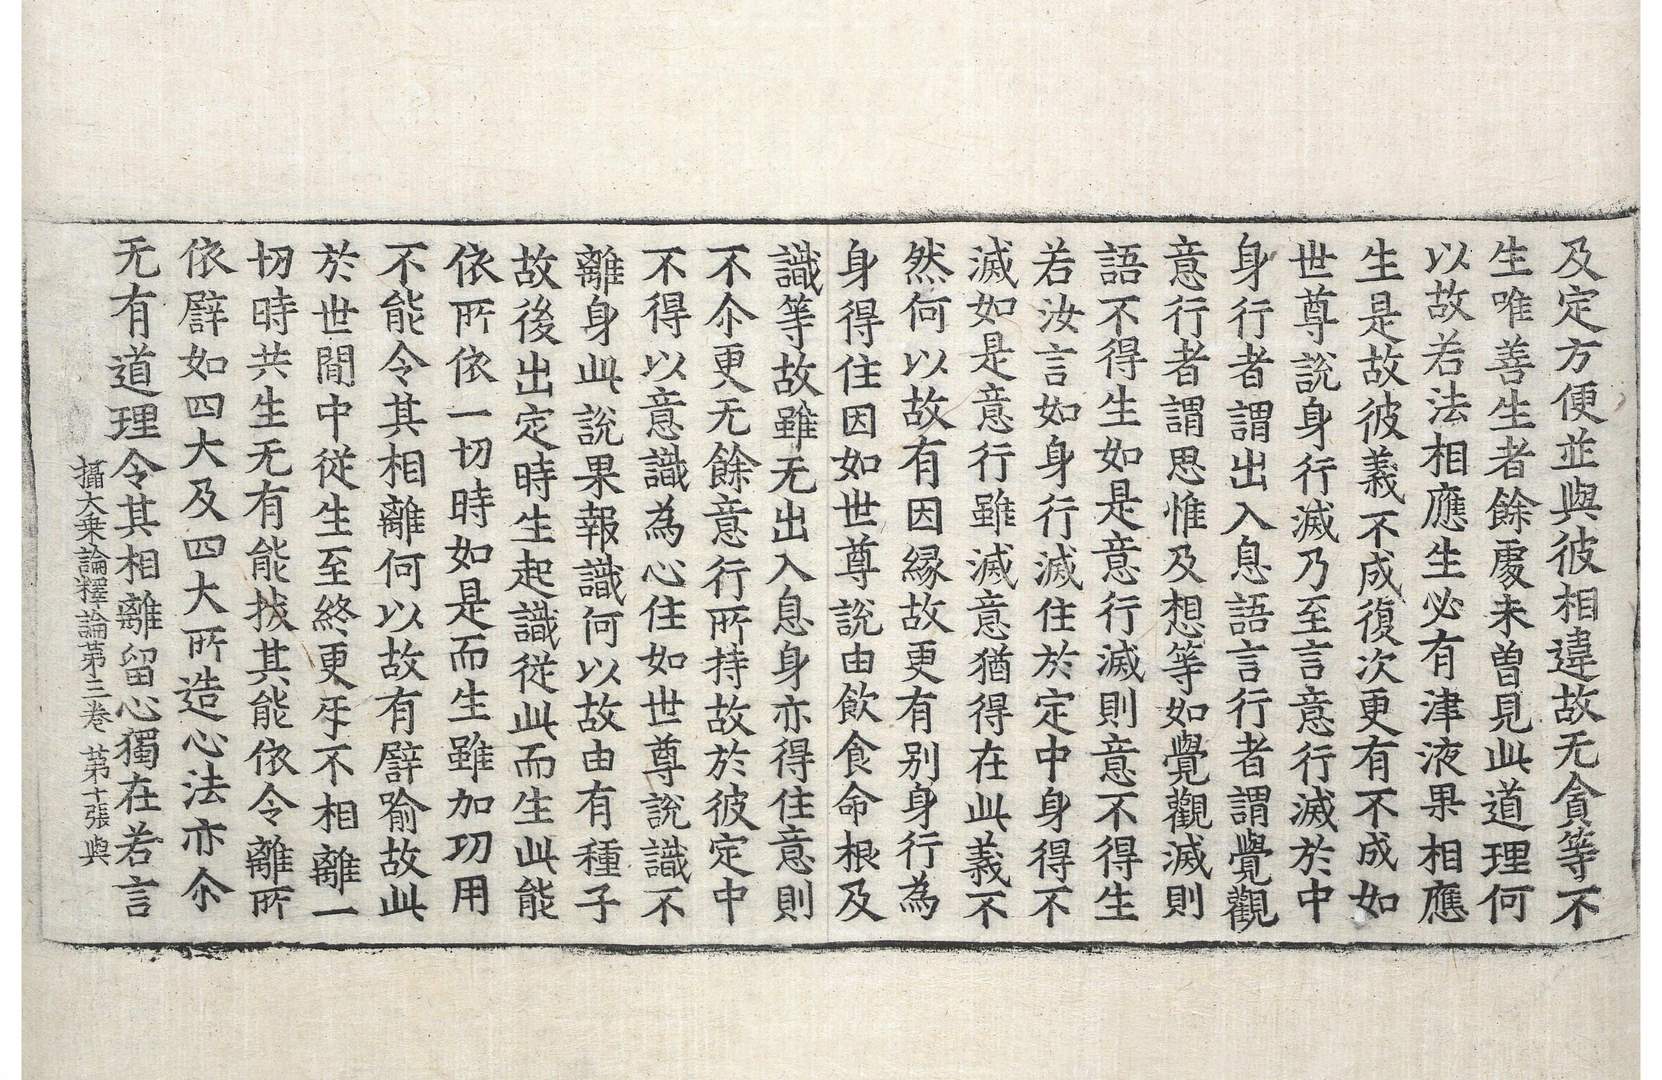 及定方便並與彼相違故无貪等不
生唯善生者餘處未曾見此道理何
以故若法相應生必有津液果相應
生是故彼義不成復次更有不成如
世尊說身行滅乃至言意行滅於中
身行者謂出入息語言行者謂覺觀
意行者謂思惟及想等如覺觀滅則
語不得生如是意行滅則意不得生
若汝言如身行滅住於定中身得不
滅如是意行雖滅意猶得在此義不
然何以故有因緣故更有別身行為
身得住因如世尊說由飲食命根及
識等故雖无出入息身亦得住意則
不尒更无餘意行所持故於彼定中
不得以意識為心住如世尊說識不
離身此說果報識何以故由有種子
故後出定時生起識從此而生此能
依所依一切時如是而生雖加功用
不能令其相離何以故有譬喻故此
於世間中從生至終更㸦不相離一
切時共生无有能拔其能依令離所
依譬如四大及四大所造心法亦尒
无有道理令其相離留心獨在若言
攝大乘論釋論第三卷 第十張 與